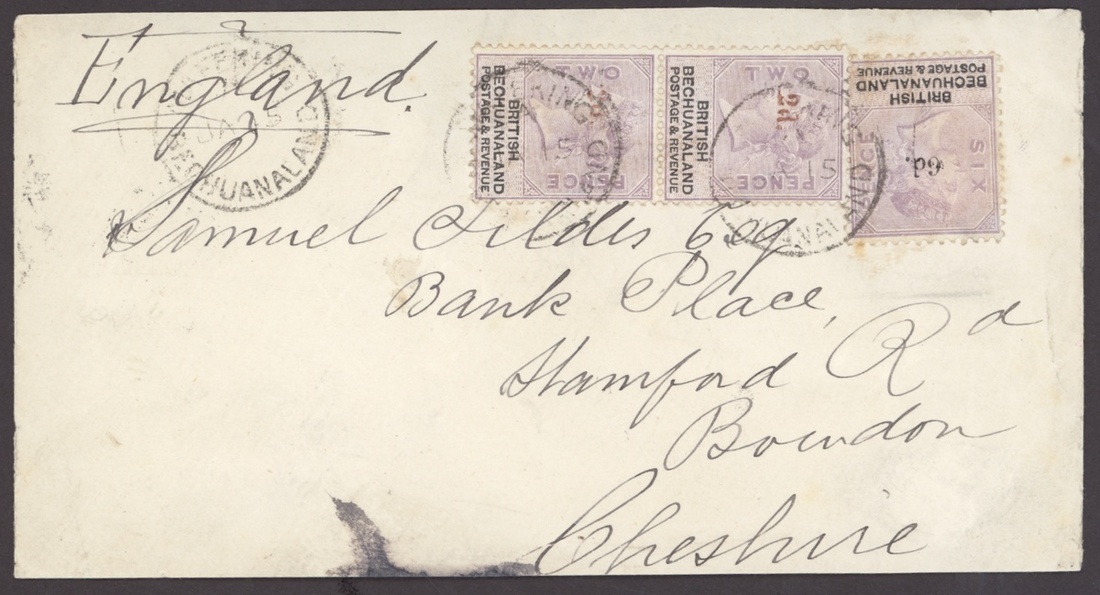 England.
Samuel Tildes Esq
Bank Place,
Stamford Rd
Bowdon
Cheshire
TWO
BRITISH
BECHUANALAND
POSTAGE & REVENUE
PENCE
TWO
2d.
BRITISH
BECHUANALAND
POSTAGE & REVENUE
PENCE
BRITISH
BECHUANALAND
POSTAGE & REVENUE
SIX
6d.
PENCE
JA 15
BECHUANALAND